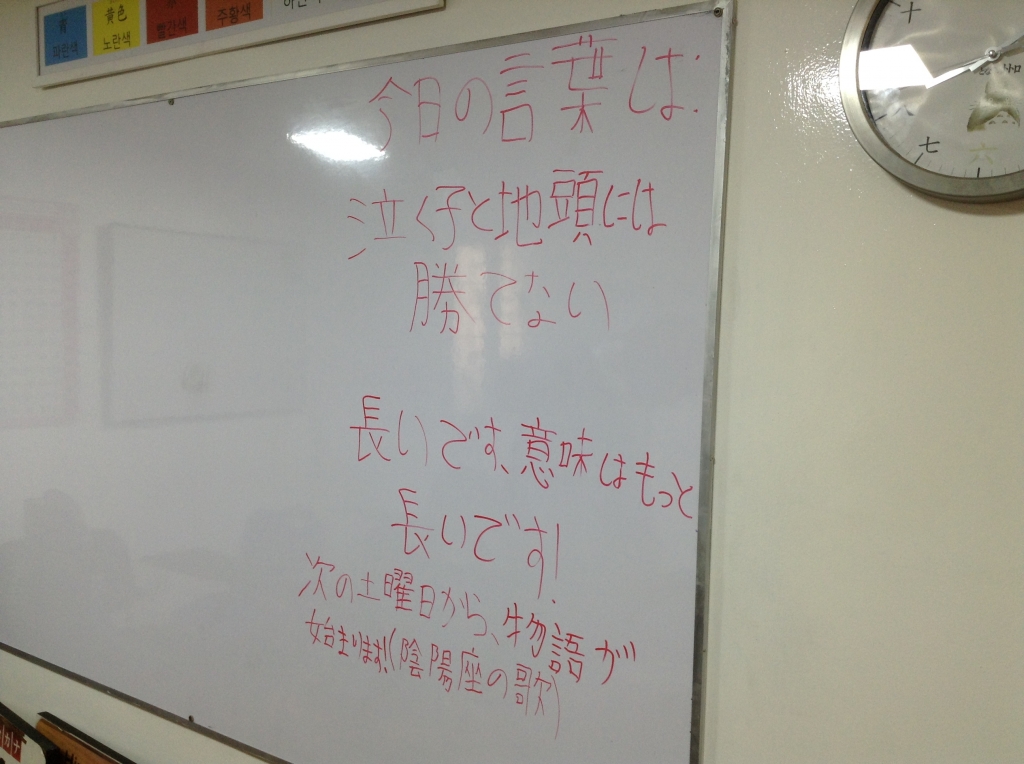 青 黄色
파란색 노란색 빨간색 주황색
今日の言葉は:
泣く子と地頭には
勝てない
長いです、意味はもっと
長いです!
次の土曜日から、物語が
始まります!(陰陽座の歌)
十
七
六